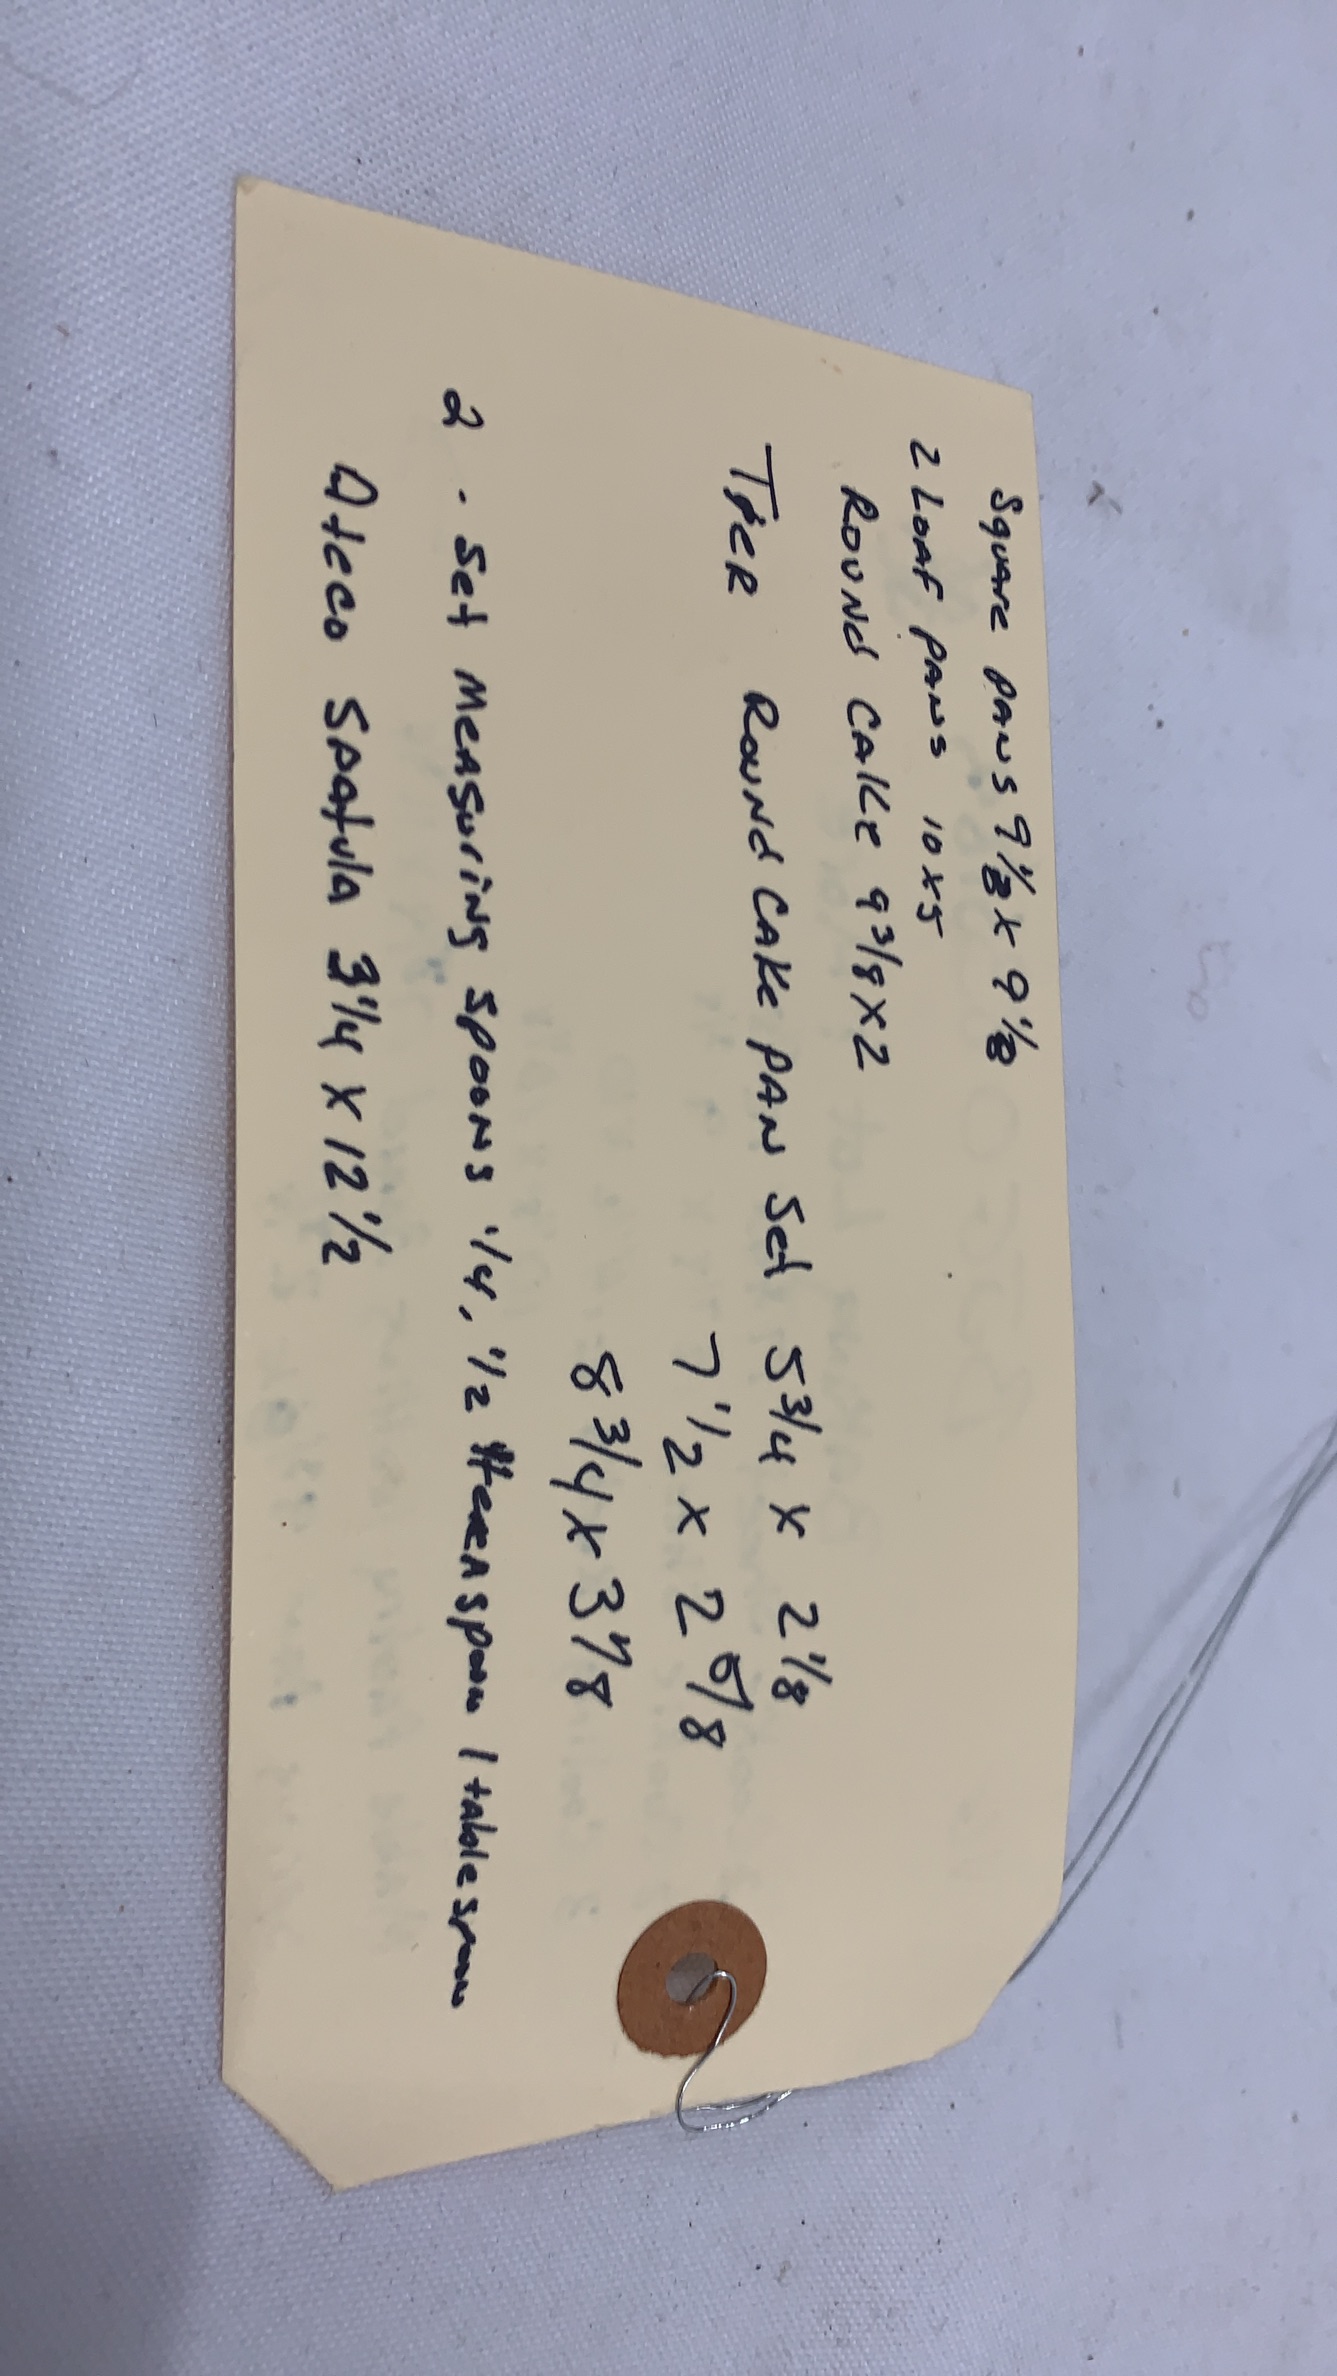 Square PANS 9 1/8 X 9 1/8
2 LOAF PANS 10 X 5
ROUNd CAKE 9 3/8 X 2
TieR ROUNd CAKe PAN Set 5 3/4 X 2 1/8
7 1/2 X 2 5/8
8 3/4 X 3 1/8
2 . Set MeASuriNg SpooNS 1/4, 1/2 teASpooN 1 tableSpooN
Ateco SpAtulA 3 1/4 X 12 1/2